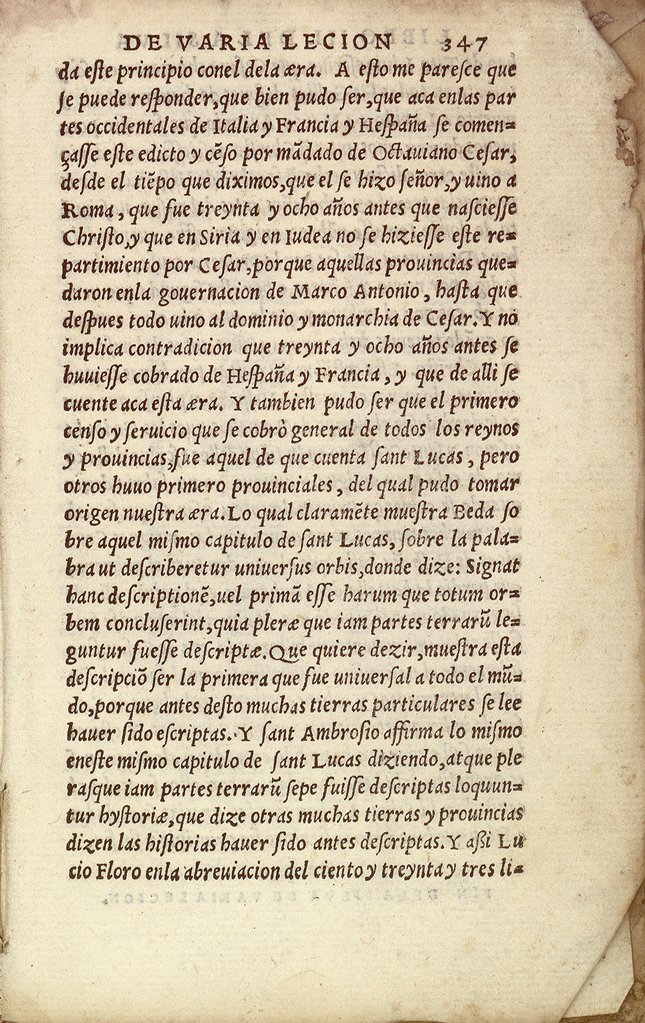 DE VARIA LECION 347
da este principio conel dela æra. A esto me paresce que
se puede responder,que bien pudo ser,que aca enlas par
tes occidentales de Italia y Francia y Hespaña se comen=
çasse este edicto y cẽso por mãdado de Octauiano Cesar,
desde el tiẽpo que diximos,que el se hizo señor,y uino a
Roma, que fue treynta y ocho años antes que nasciesse
Christo,y que en Siria y en Iudea no se hiziesse este re=
partimiento por Cesar,porque aquellas prouincias que=
daron enla gouernacion de Marco Antonio, hasta que
despues todo uino al dominio y monarchia de Cesar.Y no
implica contradicion que treynta y ocho años antes se
huuiesse cobrado de Hespaña y Francia, y que de alli se
cuente aca esta æra. Y tambien pudo ser que el primero
censo y seruicio que se cobrò general de todos los reynos
y prouincias,fue aquel de que cuenta sant Lucas, pero
otros huuo primero prouinciales, del qual pudo tomar
origen nuestra æra.Lo qual claramẽte muestra Beda so
bre aquel mismo capitulo de sant Lucas, sobre la pala=
bra ut describeretur uniuersus orbis,donde dize: Signat
hanc descriptionẽ,uel primã esse harum que totum or=
bem concluserint,quia pleræ que iam partes terrarũ le=
guntur fuesse descriptæ.Que quiere dezir,muestra esta
descripciõ ser la primera que fue uniuersal a todo el mũ=
do,porque antes desto muchas tierras particulares se lee
hauer sido escriptas. Y sant Ambrosio affirma lo mismo
eneste mismo capitulo de sant Lucas diziendo,atque ple
rasque iam partes terrarũ sepe fuisse descriptas loquun=
tur hystoriæ,que dize otras muchas tierras y prouincias
dizen las historias hauer sido antes descriptas.Y aßi Lu
cio Floro enla abreuiacion del ciento y treynta y tres li=